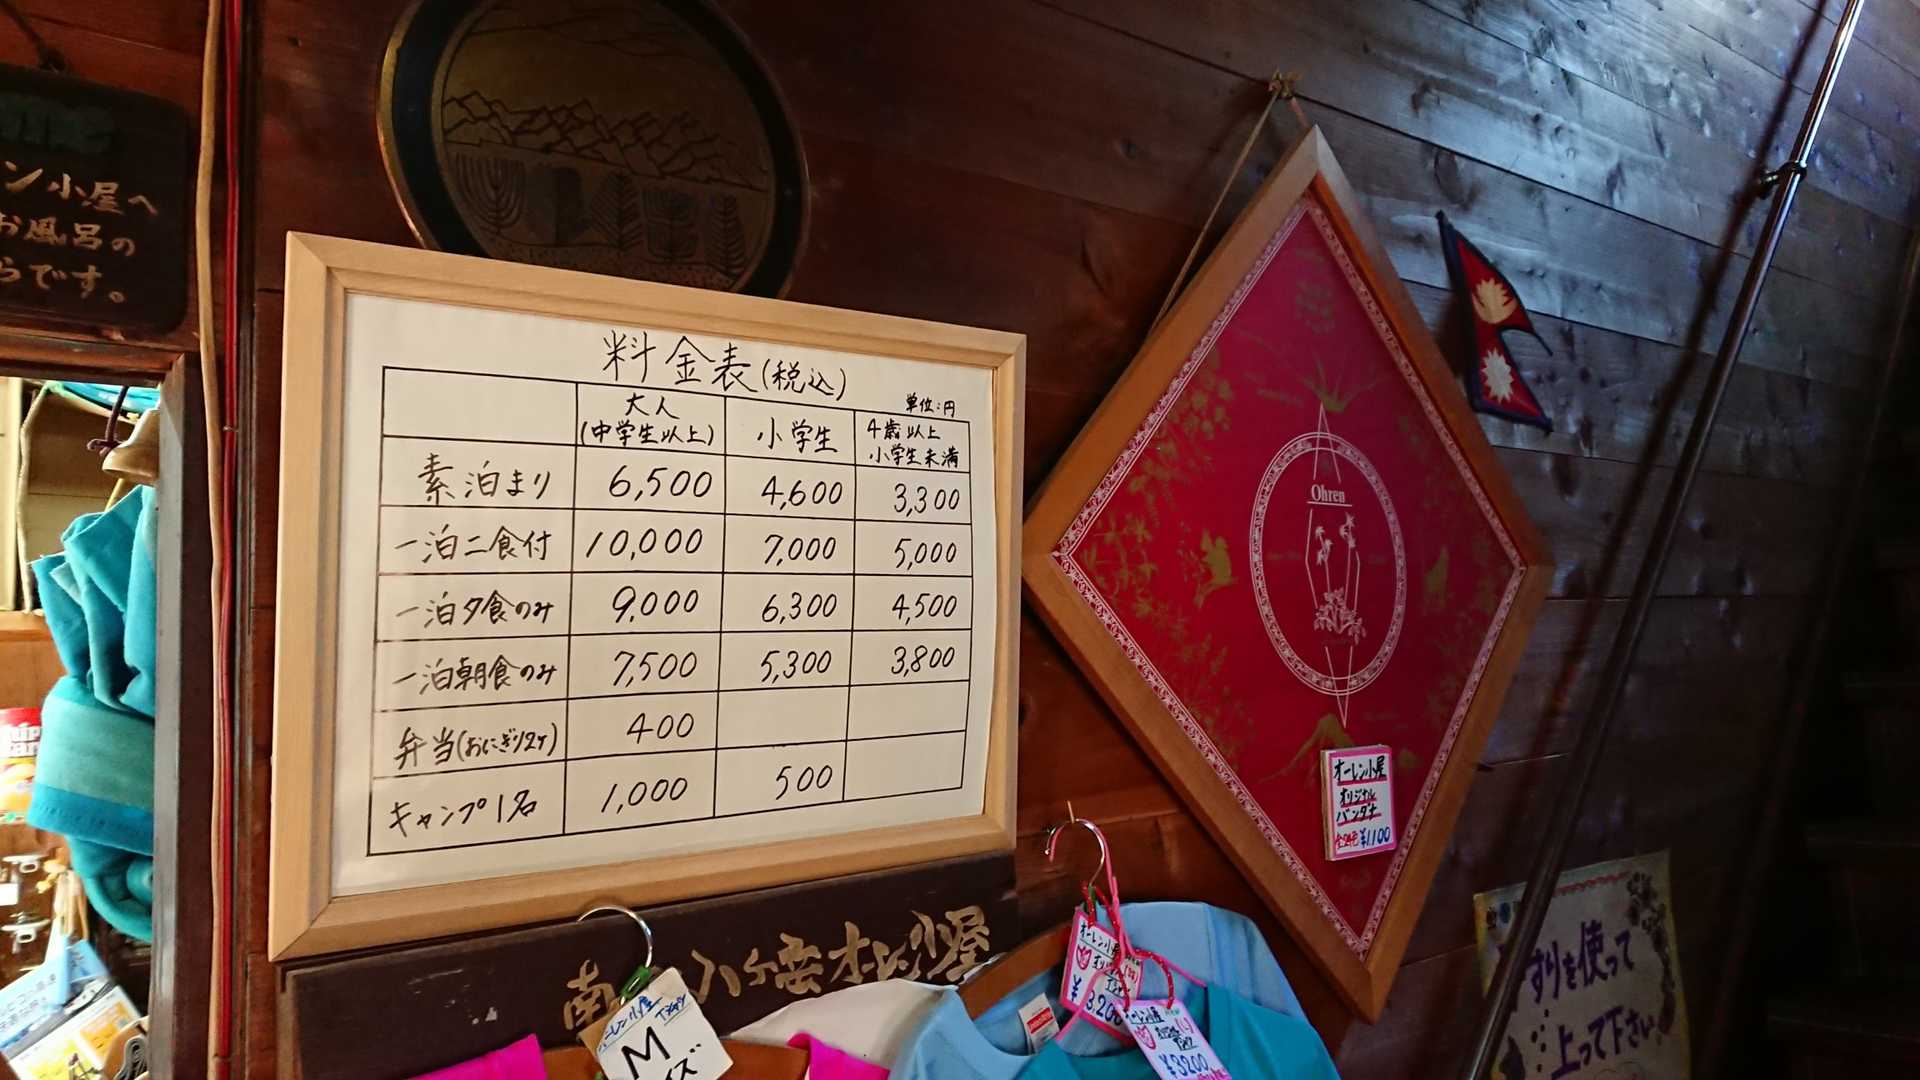 ン小屋へ
お風呂の
らです。
料金表(税込)
単位:円
大人
(中学生以上)
小学生
4歳以上
小学生未満
素泊まり 6,500 4,600 3,300
一泊二食付 10,000 7,000 5,000
一泊夕食のみ 9,000 6,300 4,500
一泊朝食のみ 7,500 5,300 3,800
弁当(おにぎり2ケ) 400
キャンプ1名 1,000 500
Ohren
オーレン小屋
オリジナル
バンダナ
¥1,100
南 八ヶ岳オーレン小屋
オーレン小屋
Tシャツ
M
イズ
オーレン小屋
¥3,200
オーレン小屋
¥3200
すりを使って
上って下さい